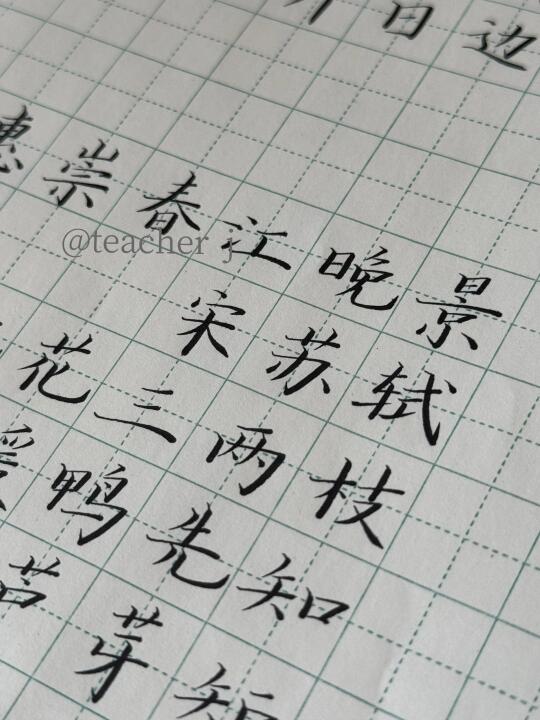 日边
惠崇春江晚景
@teacher j
宋 苏轼
花三两枝
暖鸭先知
芽短